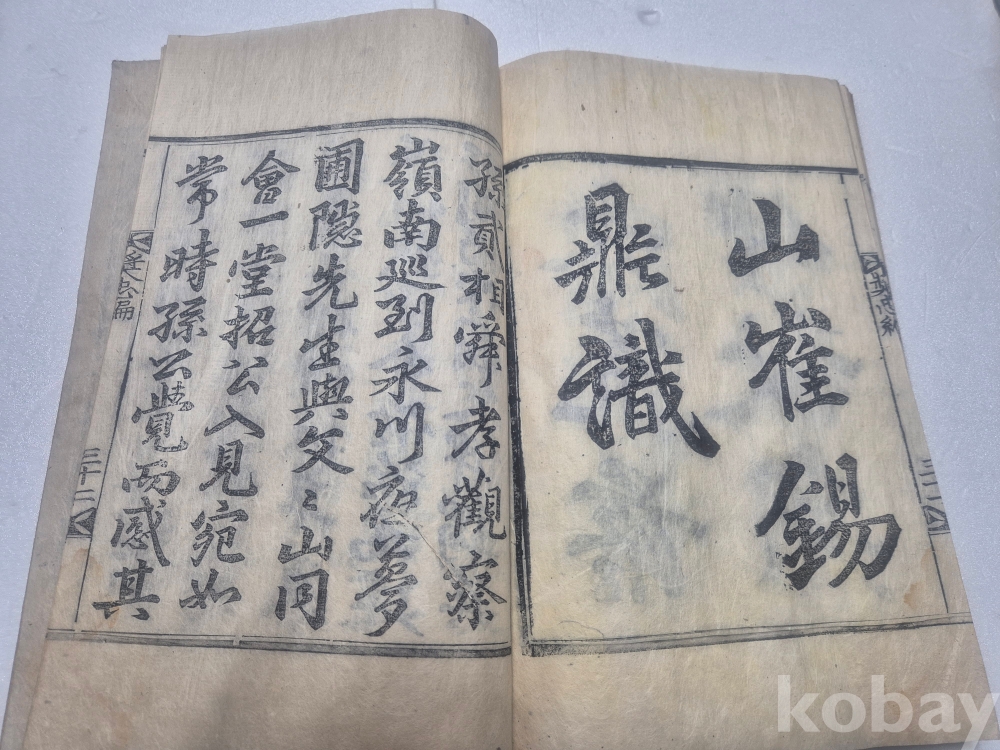 山崔錫
鼎識
孫貳相舜孝觀察
嶺南巡到永川夜夢
圃隱先生與父〻山同
會一堂招公入見宛如
常時孫公覺而感其
三十二
kobay